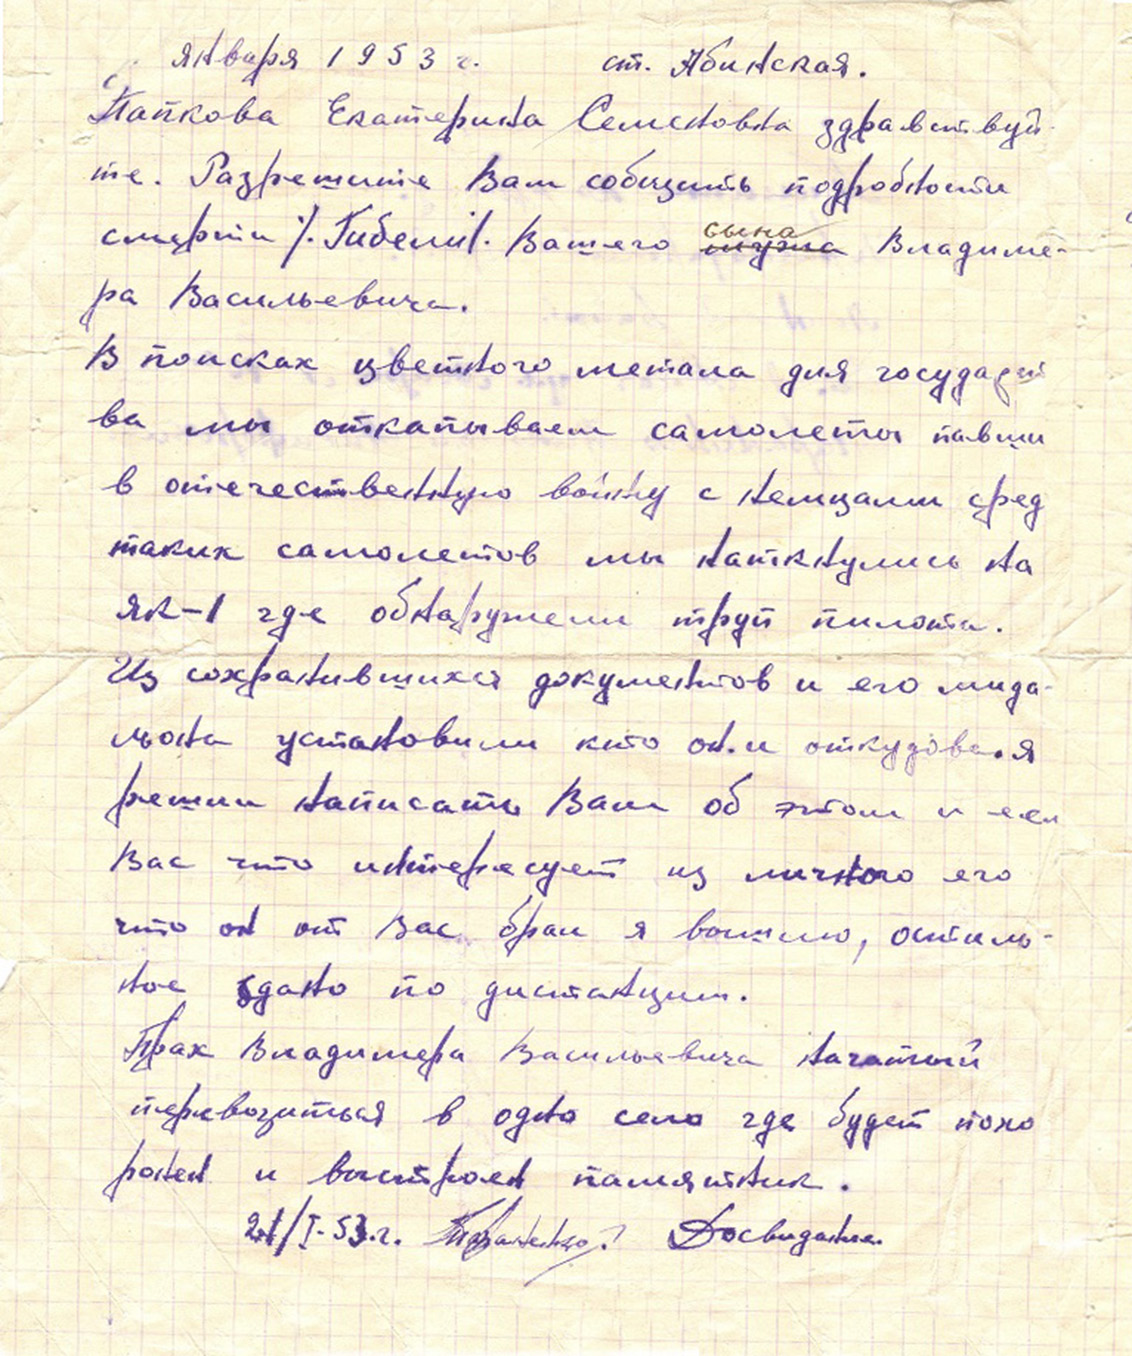 января 1953 г. ст. Абинская.
Папкова Екатерина Семеновна здравствуй-
те. Разрешите Вам собщить подробности
смерти /. Гибели/. Вашего сына мужа Владиме-
ра Васильевича.
В поисках цветного метала для государст
ва мы откапываем самолеты павши
в отечественную войну с немцами сред
таких самолетов мы наткнулись на
як-1 где обнаружели труп пилота.
Из сохранившихся документов и его мида-
льона установили кто он и откудова. я
решил написать Вам об этом и если
Вас что интересует из личного его
что он от Вас брал я вышлю, осталь-
ное здано по дистанции.
Прах Владимера Васильевича
перевозиться в одно село где будет похо
ронен и выстроен памятник.
21/I-53.г. Досвидание.